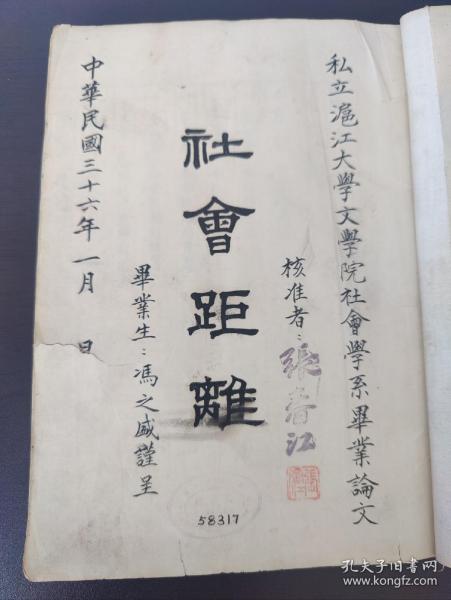 私立滬江大學文學院社會學系畢業論文
核准者：張春江
社會距離
畢業生：馮之盛謹呈
中華民國三十六年一月 日
58317
孔夫子旧书网
www.kongfz.com